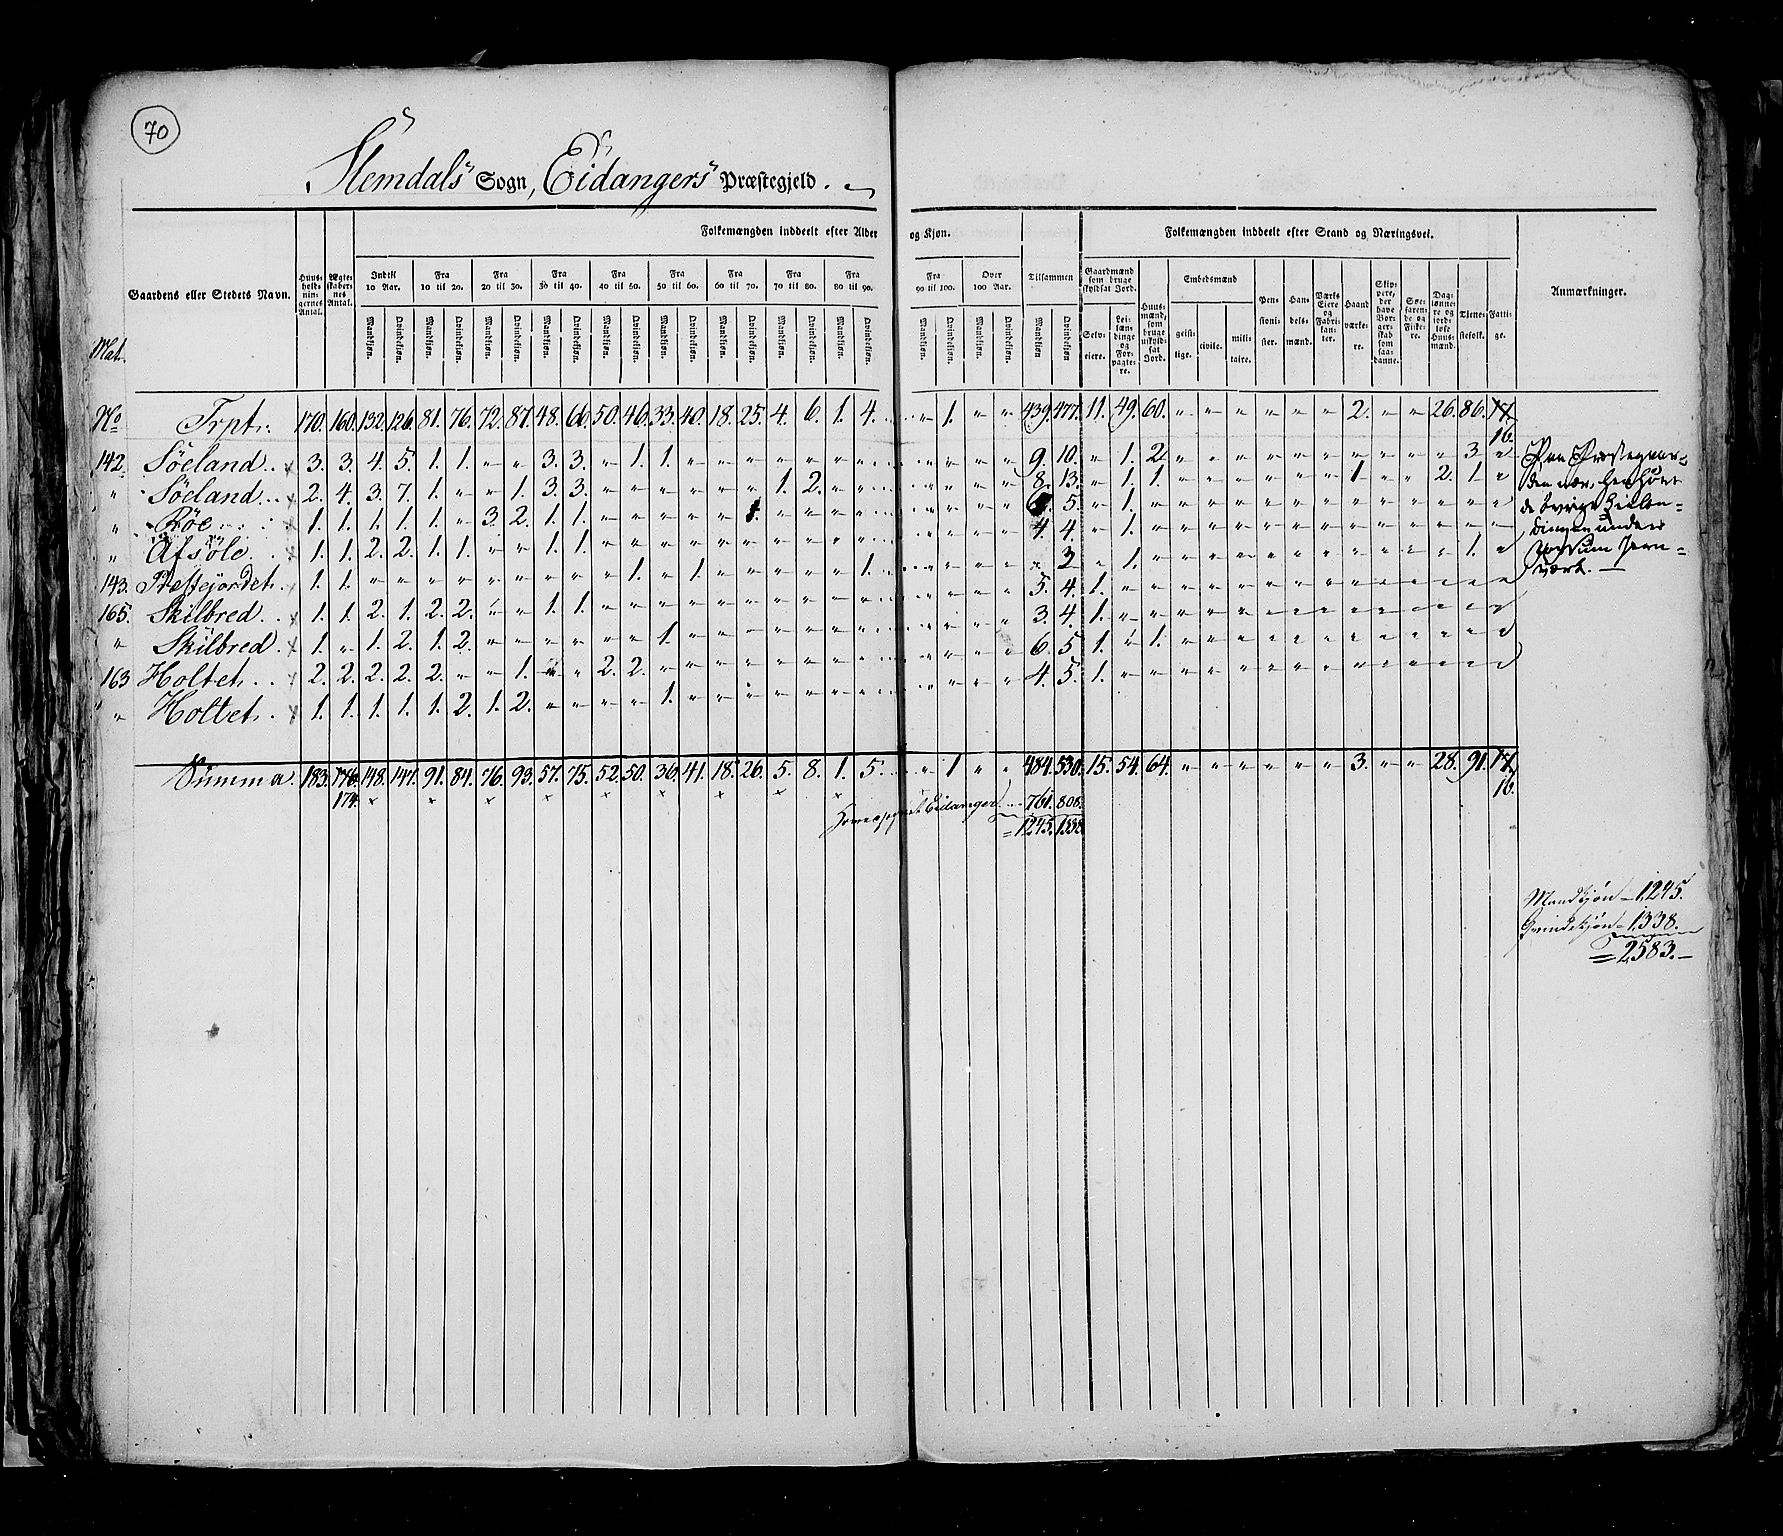 70
Slemdals Sogn, Eidangers Præstegjeld.
Folkemængden inddeelt efter Alder og Kjøn. Folkemængden inddeelt efter Stand og Næringsvei.
Gaardens eller Stedets Navn. Huusholdningernes Antal. Ægteskabernes Antal. Indtil 10 Aar. Fra 10 til 20. Fra 20 til 30. Fra 30 til 40. Fra 40 til 50. Fra 50 til 60. Fra 60 til 70. Fra 70 til 80. Fra 80 til 90. Fra 90 til 100. Over 100 Aar. Tilsammen Gaardmænd som bruge skyldsat Jord. Huusmænd, som bruge uskyldsat Jord. Embedsmænd Pensionister. Handelsmænd. Værks Eiere og Fabrikanter. Haandværkere. Skippere, der have Borgerskab som saadanne. Søefarende og Fiskere. Dagleiønnere og jordløse Huusmænd. Tjenestefolk. Fattige. Anmærkninger.
Mandkjøn. Qvindekjøn. Mandkjøn. Qvindekjøn. Mandkjøn. Qvindekjøn. Mandkjøn. Qvindekjøn. Mandkjøn. Qvindekjøn. Mandkjøn. Qvindekjøn. Mandkjøn. Qvindekjøn. Mandkjøn. Qvindekjøn. Mandkjøn. Qvindekjøn. Mandkjøn. Qvindekjøn. Mandkjøn. Qvindekjøn. Mandkjøn. Qvindekjøn. Selveiere. Leilændinge og Forpagtere. geistlige. civile. militaire.
Mat.
No Trpt. 170. 160. 132. 126. 81. 76. 72. 87. 48. 66. 50. 46. 33. 40. 18. 25. 4. 6. 1. 4. " 1. " " 439. 477. 11. 49. 60. " " " " " " 2. " " 26. 86. 17.
16.
142. Söeland. 3. 3. 4. 5. 1. 1. " " 3. 3. " 1. 1. " " " " " " " " " " " 9. 10. " 1. 2. " " " " " " " " " " 3. "
" Söeland. 2. 4. 3. 7. 1. " " 1. 3. 3. " " " " " " 1. 2. " " " " " " 8. 13. " 1. 1. " " " " " " 1. " " 2. 1. "
" Röe 1. 1. 1. 1. 1. " 3. 2. 1. 1. " " " " " 1. " " " " " " " " 6. 5. " 1. " " " " " " " " " " " " "
" Afsöle. 1. 1. 2. 2. 1. 1. " " 1. 1. " " " " " " " " " " " " " " 4. 4. " 1. " " " " " " " " " " " " "
143. Præstejordet. 1. 1. " " " " " " " " " 1. " 1. " " " " " 1. " " " " " 3 " 1. " " " " " " " " " " " 1. "
165. Skilbred. 1. 1. 2. 1. 2. 2. " " 1. 1. " " " " " " " " " " " " " " 5. 4. 1. " " " " " " " " " " " " " "
" Skilbred. 1. " 1. 2. 1. 2. " " " " " " 1. " " " " " " " " " " " 3. 4. 1. " " " " " " " " " " " " " "
163 Holtet. 2. 2. 2. 2. 2. " " 1. " " 2. 2. " " " " " " " " " " " " 6. 5. 1. " 1. " " " " " " " " " " " "
" Holtet. 1. 1. 1. 1. 1. 2. 1. 2. " " " " 1. " " " " " " " " " " " 4. 5. 1. " " " " " " " " " " " " " "
den
de övrige
dinger under
værk.
Summa. 183. 176. 148. 147. 91. 84. 76. 93. 57. 75. 52. 50. 36. 41. 18. 26. 5. 8. 1. 5. " 1 " " 484. 530. 15. 54. 64. " " " " " " 3. " " 28. 91. 17.
174. 16.
Eidanger 761. 808.
= 1245. 1338.
Mandkjön – 1245.
Qvindekjön – 1338.
= 2583.